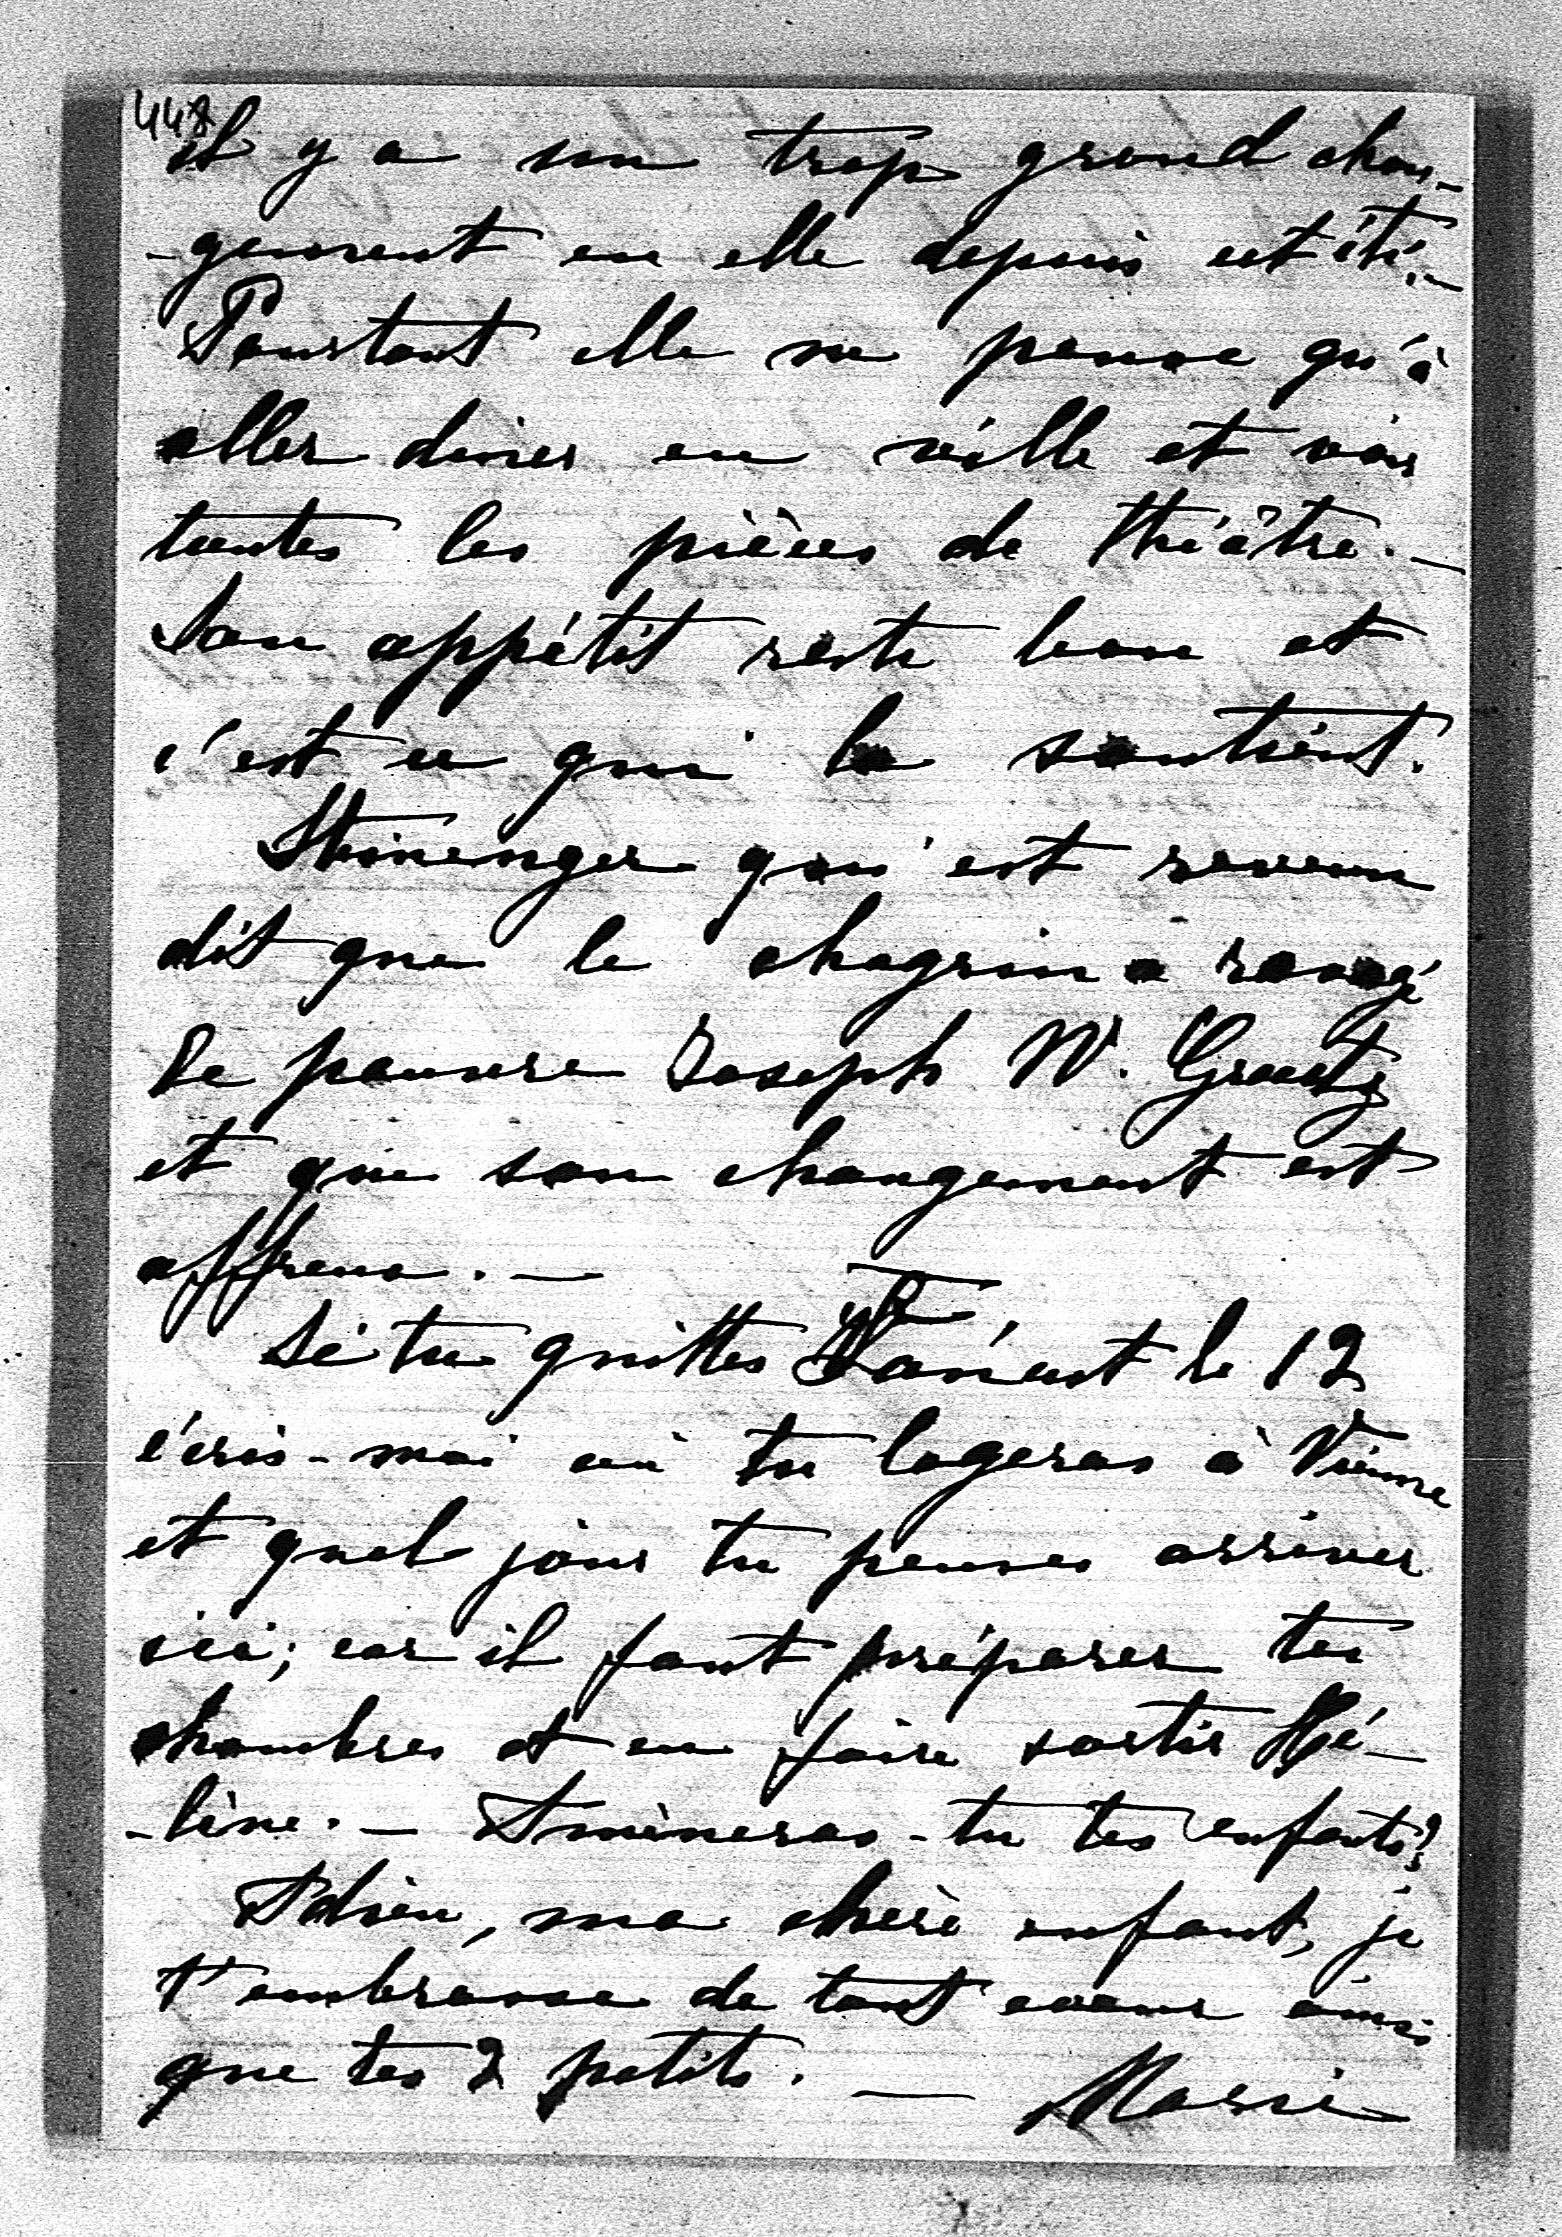 448
il y a un trop grand chan-
-gement en elle depuis cet été. -
Pourtant elle ne pense qu'à
aller diner en ville et voir
toutes les pièces de théâtre. -
Son appétit reste bon et
c'est ce qui la soutient.
qui est revenu
dit que le chagrin a rongé
le pauvre Joseph W.
et que son changement est
affreux. -
Si tu quittes le 12
écris-moi où tu logeras à Vienne
et quel jour tu penses arriver
ici; car il faut préparer tes
chambres et en faire sortir Hé-
-lène. - Amèneras-tu tes enfants?
Adieu, ma chère enfant, je
t'embrasse de tout coeur ainsi
que tes 2 petits. - Marie